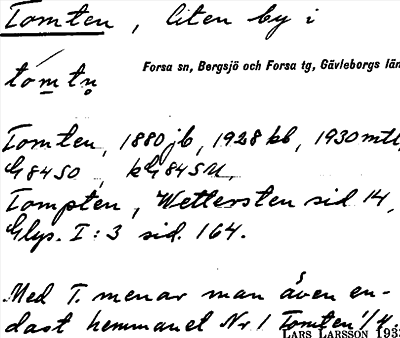 Tomten, liten by i
Forsa sn, Bergsjö och Forsa tg, Gävleborgs län
tómtn̥
Tomten, 1880 jb, 1928 kb, 1930 mtl,
G84SO, kG84SU,
Tompten, Wettersten sid 14,
Glys. I:3 sid. 164.
Med T. menar man även en-
dast hemmanet Nr 1 Tomten 1/4.
LARS LARSSON 193